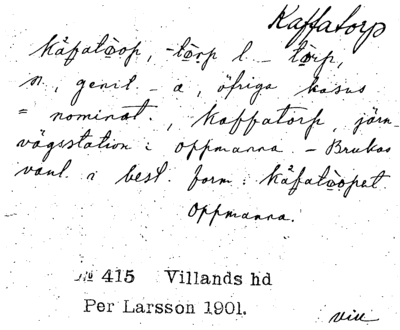 Kaffatorp
kåfatòop, -tòrp l. -tòrp,
n, genit. -a, öfriga kasus
= nominat., Kaffatorp, järn-
vägsstation i Oppmanna. - Brukas
vanl. i best. form: kåfatòopet
Oppmanna.
№ 415 Villands hd
Per Larsson 1901.